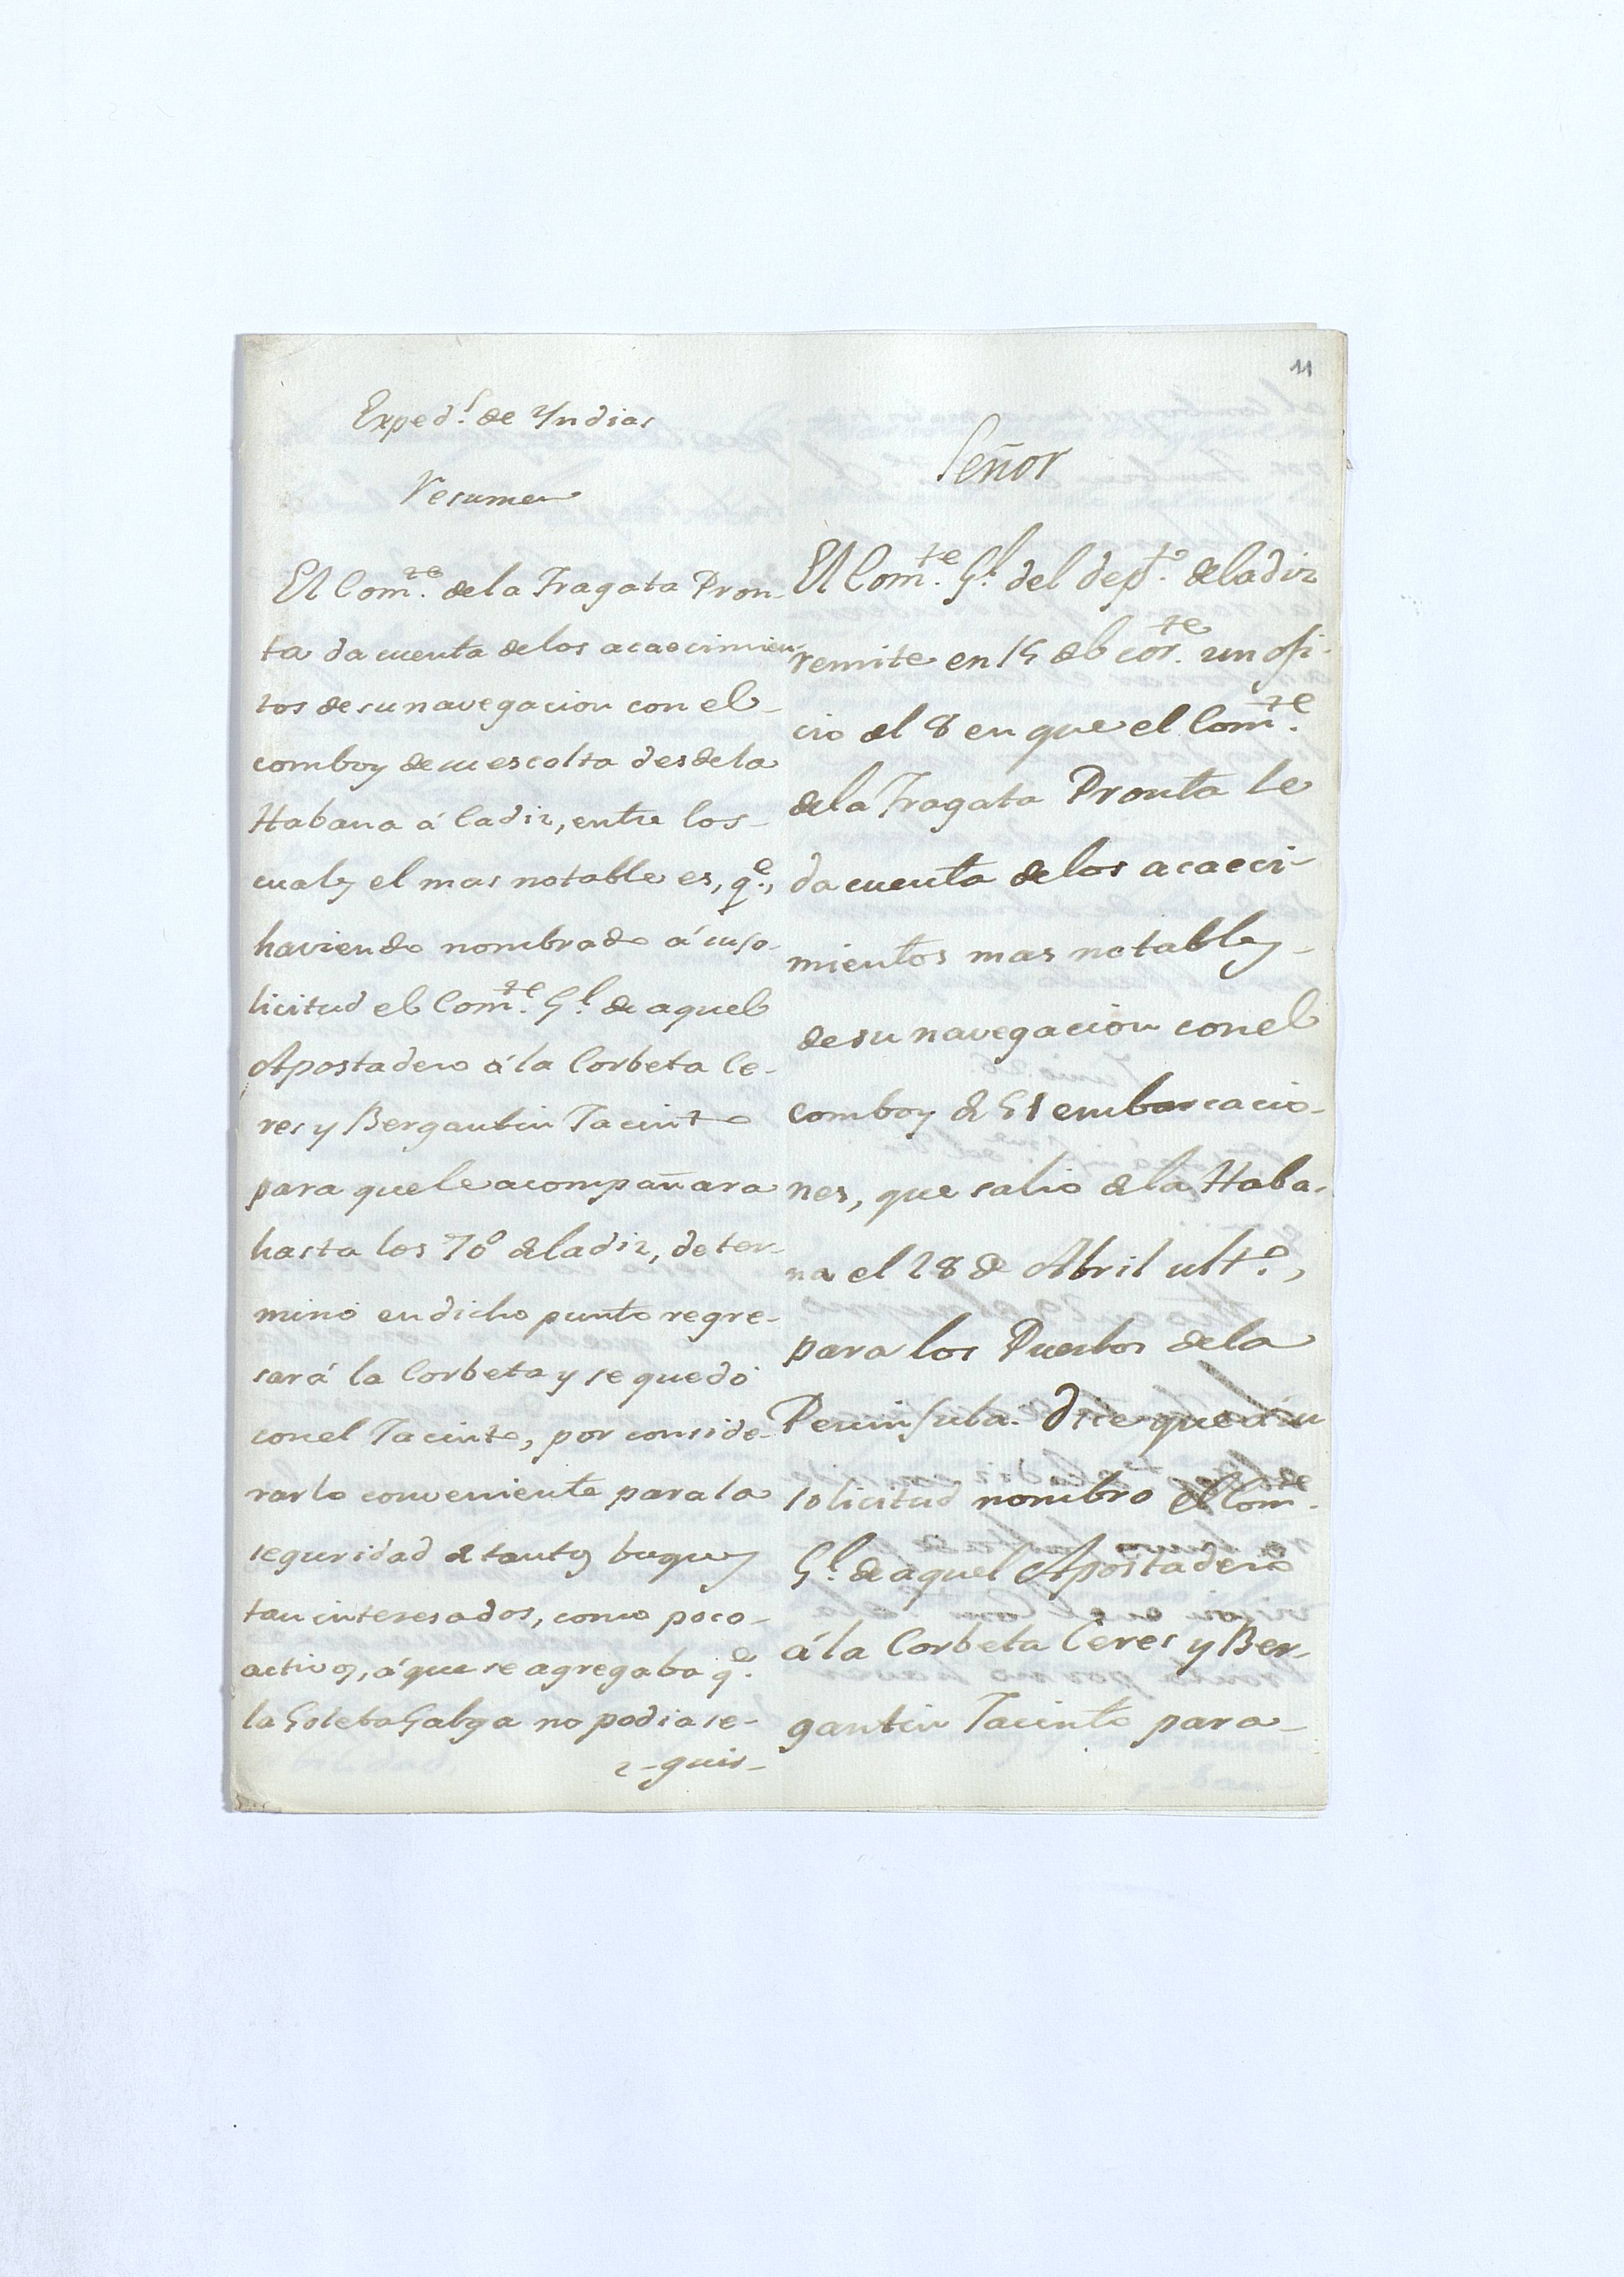 11
Exped.s de Yndias
Resumen
El Com.te de la Fragata Pron-
ta da cuenta de los acaecimien-
tos de su navegacion con el
comboy de su escolta desde la
Habana á Cadiz, entre los
cuales el mas notable es, q.e,
haviendo nombrado á su so-
licitud el Com.te G.l de aquel
Apostadero á la Corbeta Ce-
res y Bergantin Jacinto
para que le acompañara
hasta los 70º de Cadiz, deter-
minó en dicho punto regre-
sará la Corbeta y se quedó
con el Jacinto, por conside-
rarlo conveniente para la
seguridad de tantos buques
tan interesados, como poco
activos, á que se agregaba q.e
la Goleta Galga no podia se-
guir
Señor
El Com.te G.l del dep.to de Cadiz
remite en 15 del cor.te un ofi-
cio del 8 en que el Com.te
de la Fragata Pronta le
da cuenta de los acaeci-
mientos mas notables
de su navegacion con el
comboy de 51 embarcacio-
nes, que salió de la Haba-
na el 28 de Abril ult.o,
para los Puertos de la
Peninsula. Dice que á su
solicitud nombró el Com.te
G.l de aquel Apostadero
á la Corbeta Ceres y Ber-
gantin Jacinto para